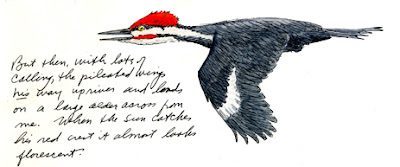 But then, with lots of
calling, the pileated wings
his way upriver and lands
on a large alder across from
me. When the sun catches
his red crest it almost looks
florescent.